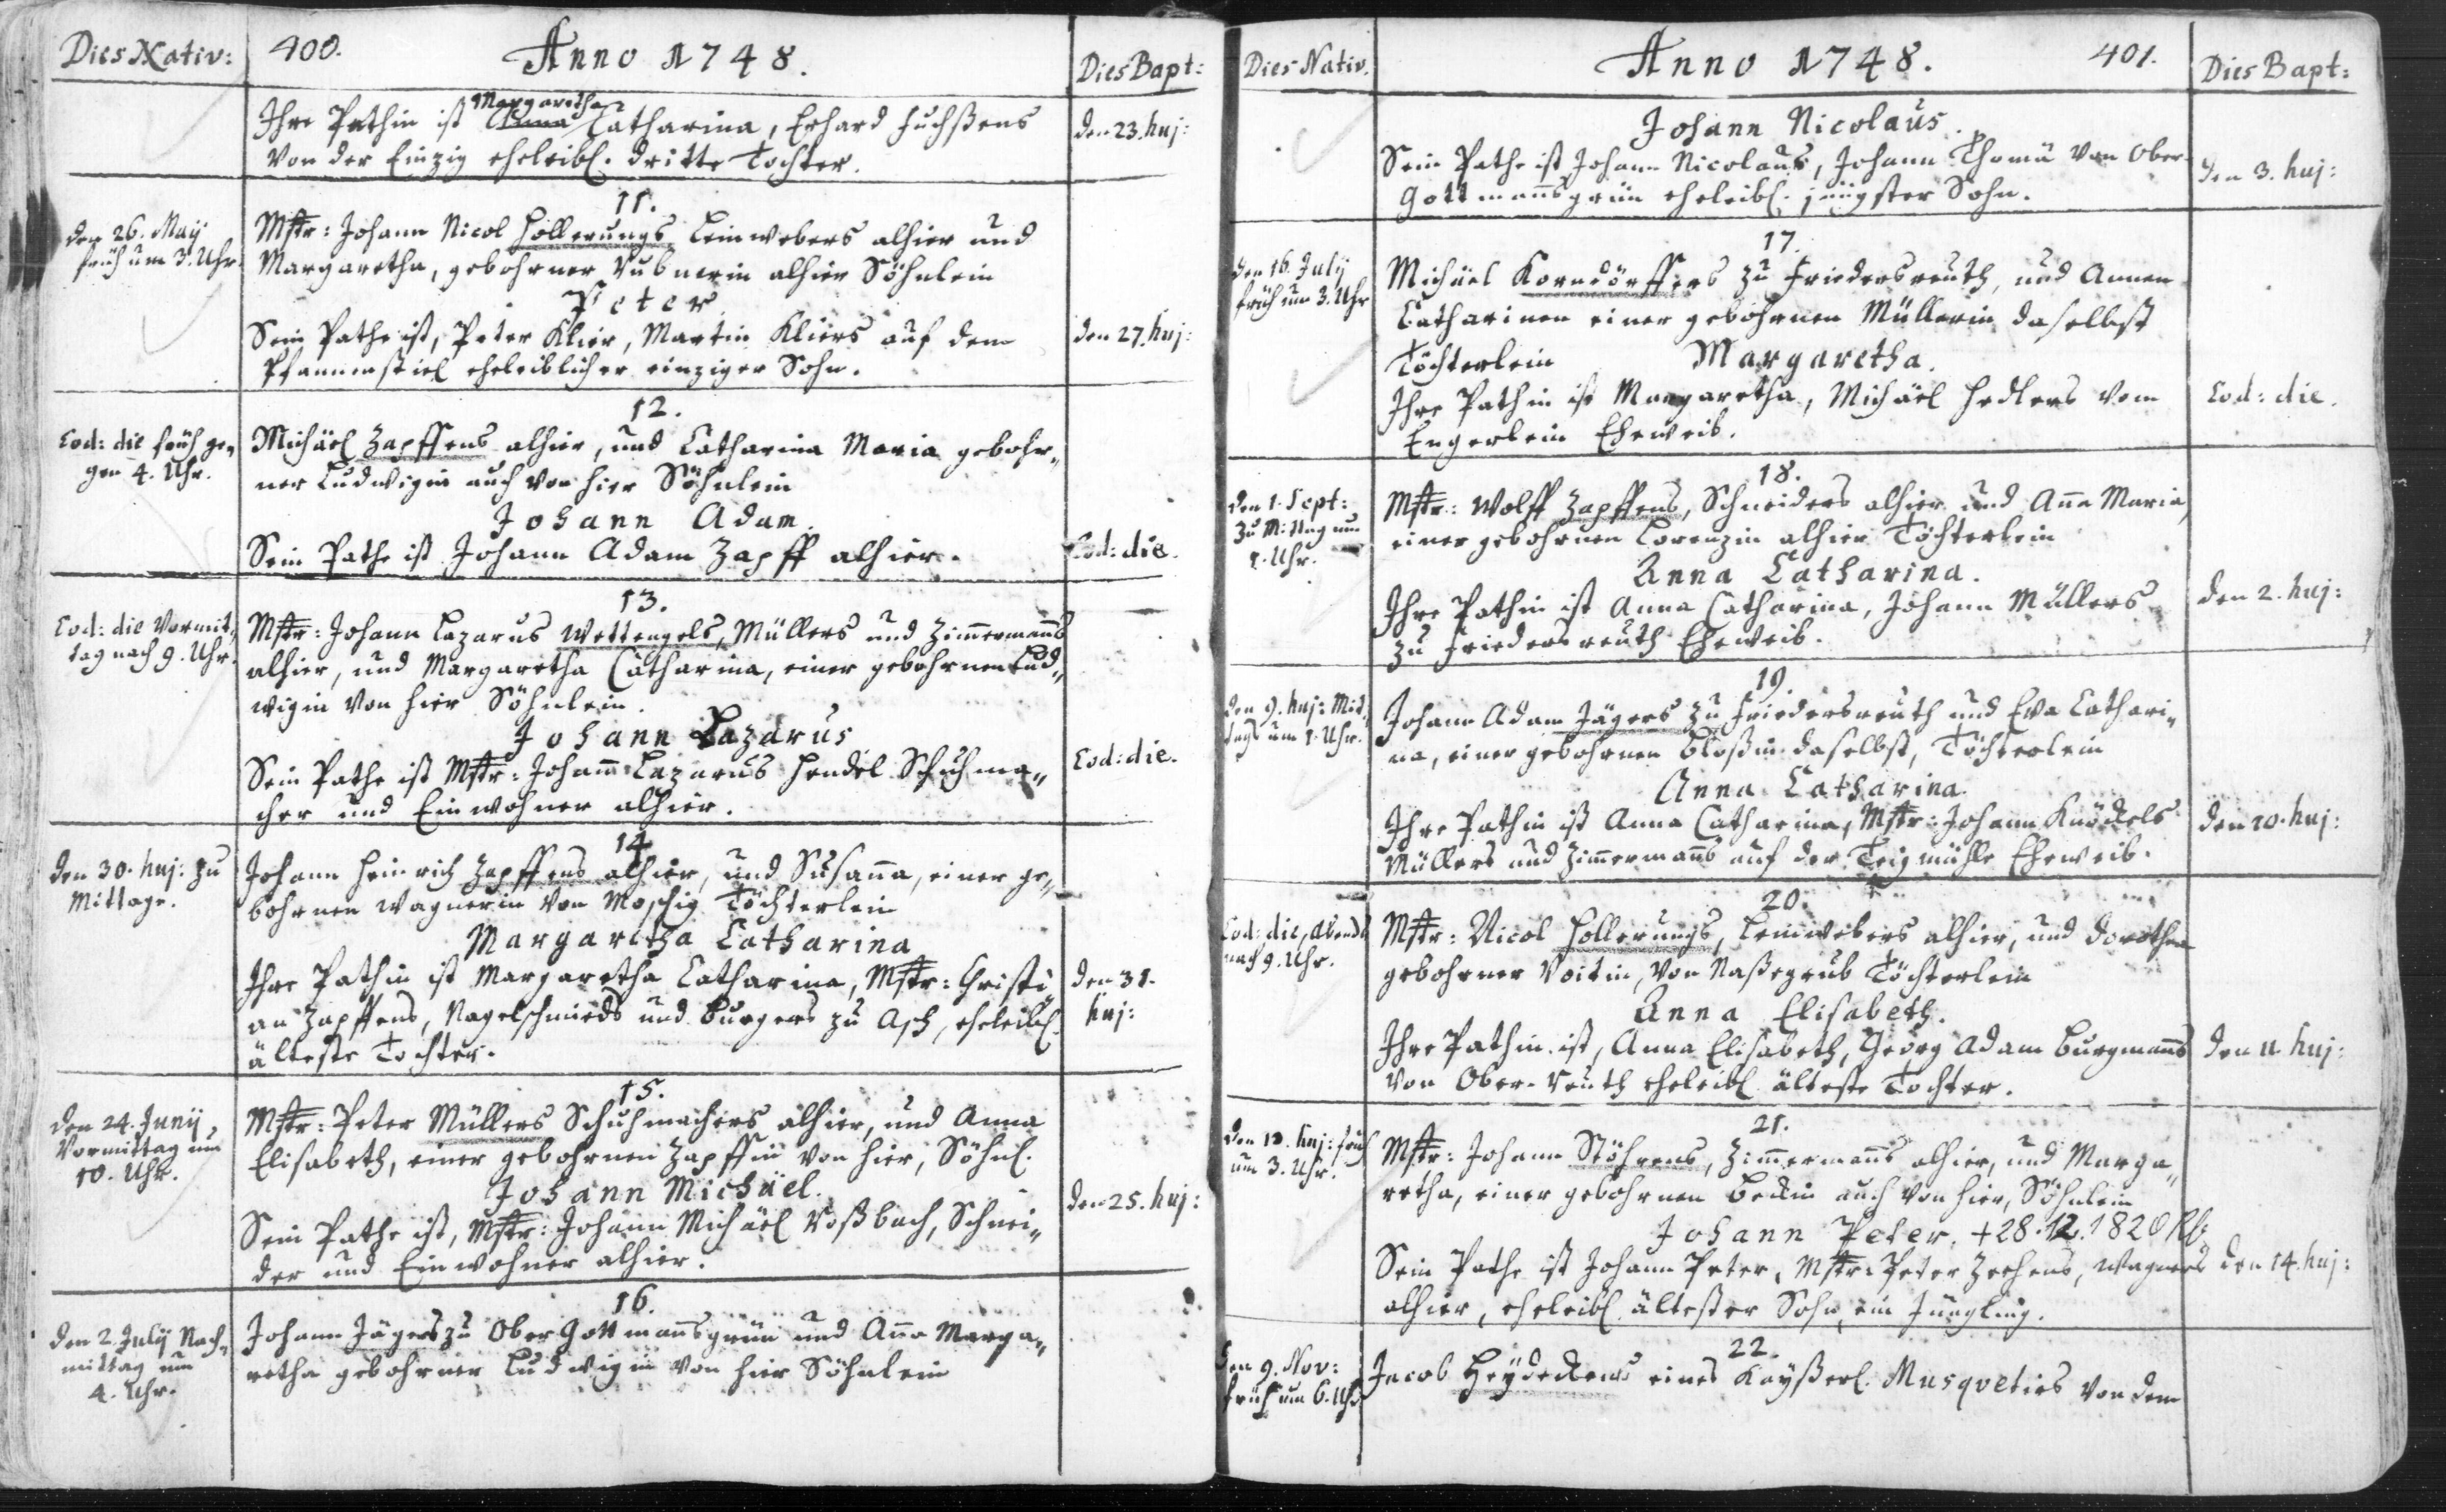 Dies Nativ:
400.
Anno 1748.
Dies Bapt:
Ihre Pathin ist Margaretha Anna Catharina, Erhard Fuchßens
von der Einzig eheleibl. dritte Tochter.
den 23. huj:
11.
den 26. Maij
früh um 3. Uhr
Mstr: Johann Nicol Hollerungs Leinwebers alhier und
Margaretha, gebohrner Hubnerin alhier Söhnlein
Peter
Sein Pathe ist, Peter Klier, Martin Kliers auf dem
Pfannenstiel eheleiblicher einziger Sohn.
den 27. huj:
12.
Eod: die früh ge„
gen 4. Uhr.
Michäel Zapffens alhier, und Catharina Maria gebohr„
ner Ludwigin auch von hier Söhnlein
Johann Adam.
Sein Pathe ist Johann Adam Zapff alhier.
Eod: die.
13.
Eod: die Vormit„
tag nach 9. Uhr.
Mstr: Johann Lazarus Wettengels, Müllers und Zimmermanns
alhier, und Margaretha Catharina, einer gebohrnen Lud„
wigin von hier Söhnlein.
Johann Lazarus
Sein Pathe ist Mstr: Johann Lazarus Hendel Schuhma„
cher und Einwohner alhier.
Eod: die.
14.
den 30. huj: zu
Mittage.
Johann Heinrich Zapffens alhier, und Susanna, einer ge„
bohrnen Wagnerin von Moschig Töchterlein
Margaretha Catharina
Ihre Pathin ist Margaretha Catharina, Mstr: Christi
an Zapffens, Nagelschmieds und Burgers zu Asch, eheleibl.
älteste Tochter.
den 31.
huj:
15.
den 24. Junij
Vormittag um
10. Uhr.
Mstr: Peter Müllers Schuhmachers alhier, und Anna
Elisabeth, einer gebohrnen Zapffin von hier, Söhnl.
Johann Michäel.
Sein Pathe ist, Mstr: Johann Michäel Roßbach, Schnei„
der und Einwohner alhier.
den 25. huj:
16.
den 2. Julij Nach„
mittag um
4. Uhr.
Johann Jägers zu Ober Gottmannsgrün und Anna Marga„
retha gebohrner Ludwigin von hier Söhnlein
Dies Nativ.
Anno 1748.
401.
Dies Bapt:
Johann Nicolaus.
Sein Pathe ist Johann Nicolaus, Johann Thomä von Ober
Gottmannsgrün eheleibl. jüngster Sohn.
den 3. huj:
17.
den 16. Julij
früh um 3. Uhr
Michäel Korndörffers zu Friedersreuth, und Annen
Catharinen einer gebohrnen Müllerin daselbst
Töchterlein Margaretha.
Ihre Pathin ist Margaretha, Michäel Hedlers vom
Engerlein Eheweib.
Eod: die.
18.
den 1. Sept:
zu Mittag um
Uhr.
Mstr: Wolff Zapffens, Schneiders alhier und Anna Maria,
einer gebohrnen Lorenzin alhier Töchterlein
Anna Catharina.
Ihre Pathin ist Anna Catharina, Johann Müllers
zu Friedersreuth Eheweib.
den 2. huj:
19.
den 9. huj: Mit„
tags um 1. Uhr.
Johann Adam Jägers zu Friedersreuth und Eva Cathari„
na, einer gebohrnen Bloßin daselbst, Töchterlein
Anna Catharina.
Ihre Pathin ist Anna Catharina, Mstr: Johann Knöckels
Müllers und Zimmermanns auf der Teigmühle Eheweib.
den 10. huj:
20.
Eod: die, Abends
nach 9. Uhr.
Mstr: Nicol Hollerungs, Leinwebers alhier, und Dorothea
gebohrner Voitin, von Naßegrub Töchterlein
Anna Elisabeth.
Ihre Pathin ist, Anna Elisabeth, Georg Adam Burgmanns
von Ober-Reuth eheleibl. älteste Tochter.
den 11. huj:
21.
den 13. huj: früh
um 3. Uhr.
Mstr: Johann Stöhrens, Zimmermanns alhier, und Marga„
retha, einer gebohrnen Beckin auch von hier, Söhnlein
Johann Peter. +28.12.1820
Sein Pathe ist Johann Peter, Mstr: Peter Zeehens, Wagners
alhier, eheleibl. ältester Sohn, ein Jüngling.
den 14. huj:
22.
den 9. Nov:
früh um 6. Uhr
Jacob Heydeckens eines Kayßerl. Musquetirs von dem